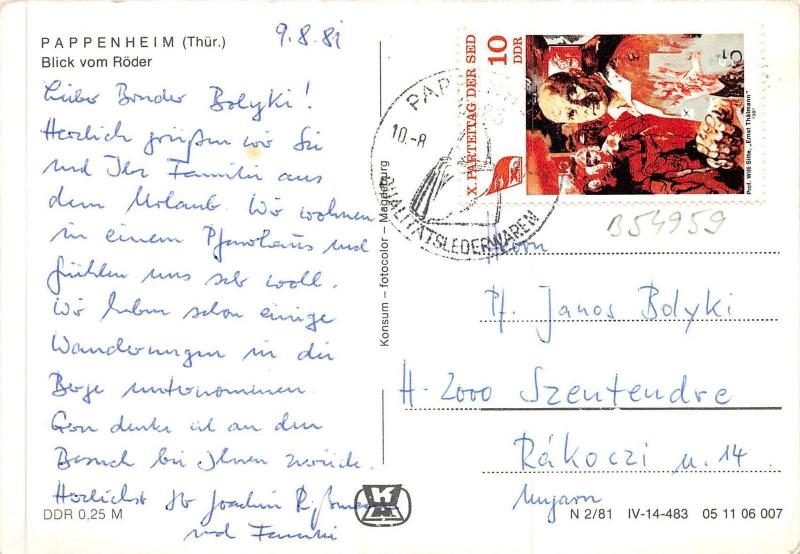 PAPPENHEIM (Thür.)
Blick vom Röder
9.8.81
Lieber Bruder Bolyki!
Herzlich grüßen wir Sie
und Ihre Familie aus
dem Urlaub. Wir wohnen
in einem Pfarrhaus und
fühlen uns sehr wohl.
Wir haben schon einige
Wanderungen in die
Berge unternommen.
Gern denke ich an den
Besuch bei Ihnen zurück.
Herzlichst Ihr Joachim
und Familie
DDR 0,25 M
Konsum – fotocolor – Magdeburg
X. PARTEITAG DER SED
10
DDR
Prof. Willi Sitte, „Ernst Thälmann"
1981
PAPPENHEIM
10.-8
QUALITÄTSLEDERWAREN
B54959
Herrn
Pf. Janos Bolyki
H-2000 Szentendre
Rákoczi u. 14
Ungarn
N 2/81 IV-14-483 05 11 06 007